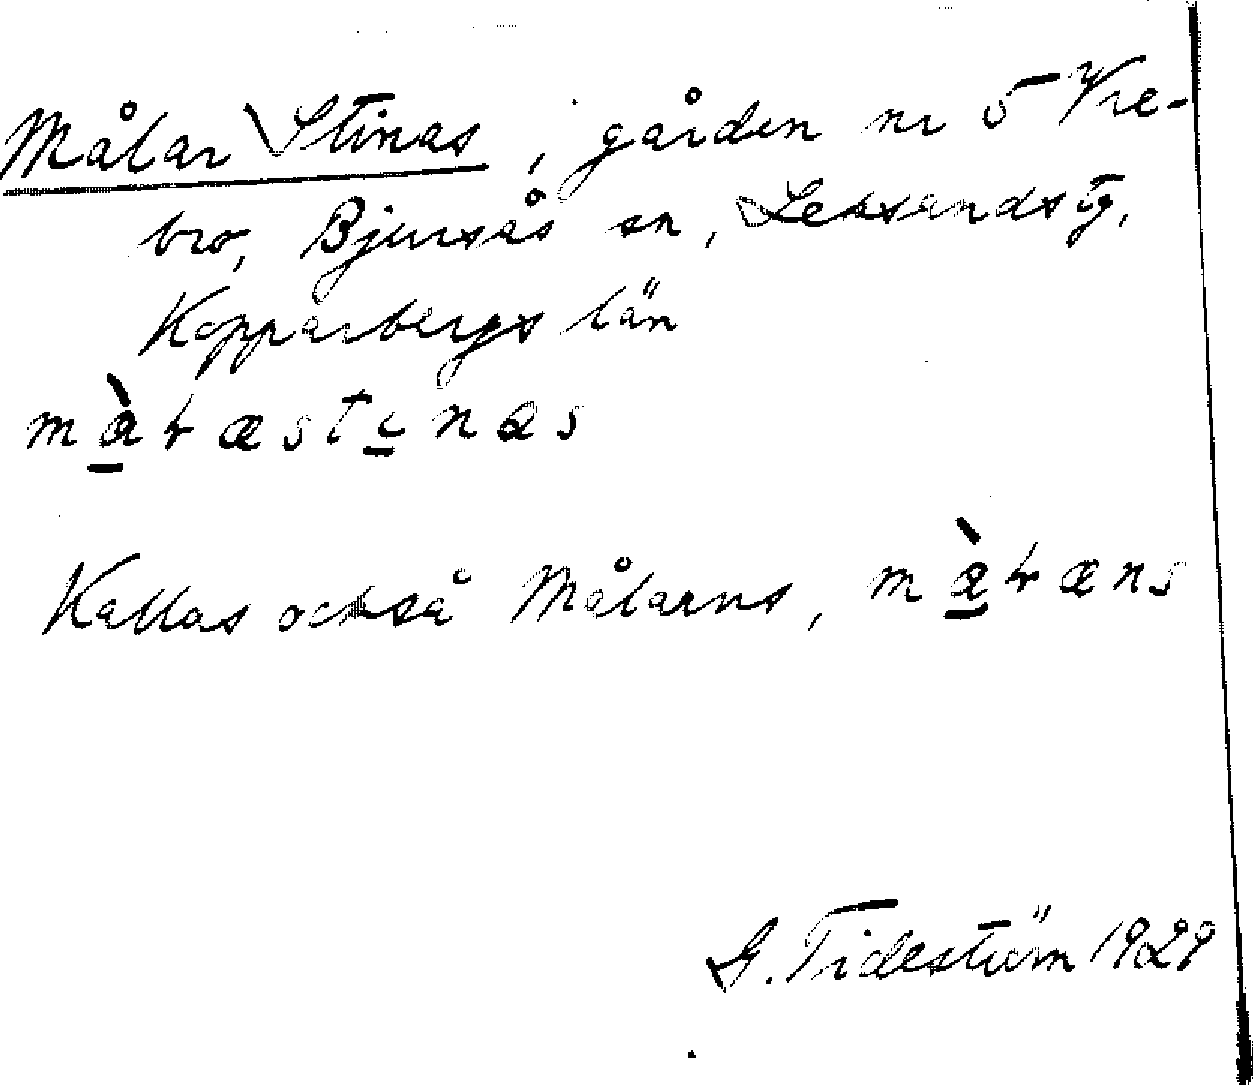 Målar Stinas, gården nr 5 Vre-
bro, Bjursås sn, Leksands tg,
Kopparbergs län
màɬæstɩnas
Kallas också Målarns, màɬæns
G. Tideström 1929